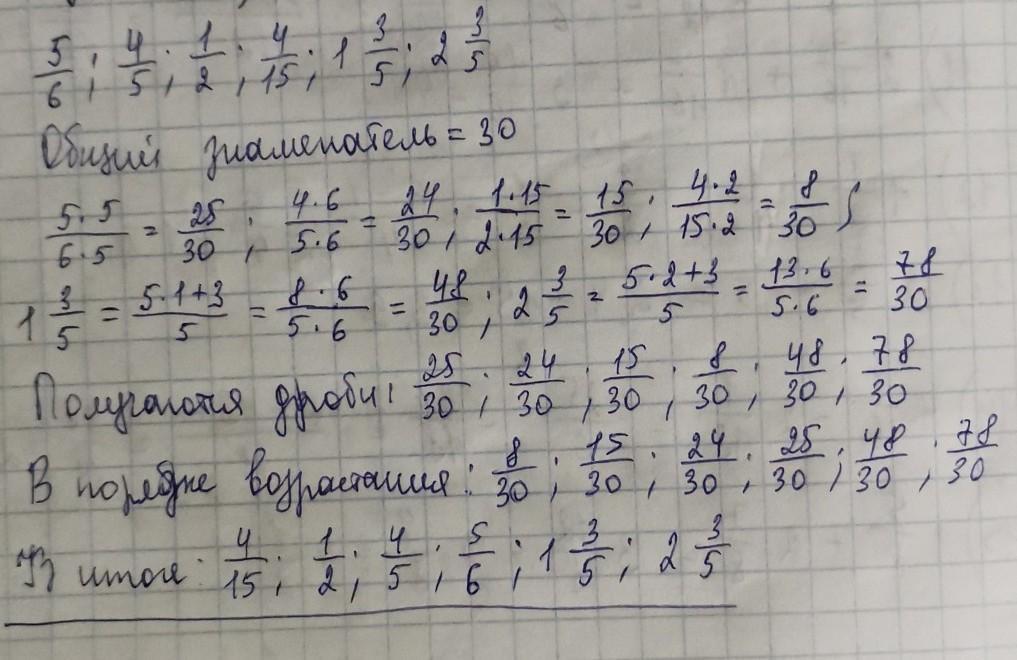 5/6; 4/5; 1/2; 4/15; 1 3/5; 2 3/5
Общий знаменатель = 30
5·5/6·5 = 25/30; 4·6/5·6 = 24/30; 1·15/2·15 = 15/30; 4·2/15·2 = 8/30;
1 3/5 = 5·1+3/5 = 8·6/5·6 = 48/30; 2 3/5 = 5·2+3/5 = 13·6/5·6 = 78/30
Получаются дроби: 25/30; 24/30; 15/30; 8/30; 48/30; 78/30
В порядке возрастания: 8/30; 15/30; 24/30; 25/30; 48/30; 78/30
В итоге: 4/15; 1/2; 4/5; 5/6; 1 3/5; 2 3/5